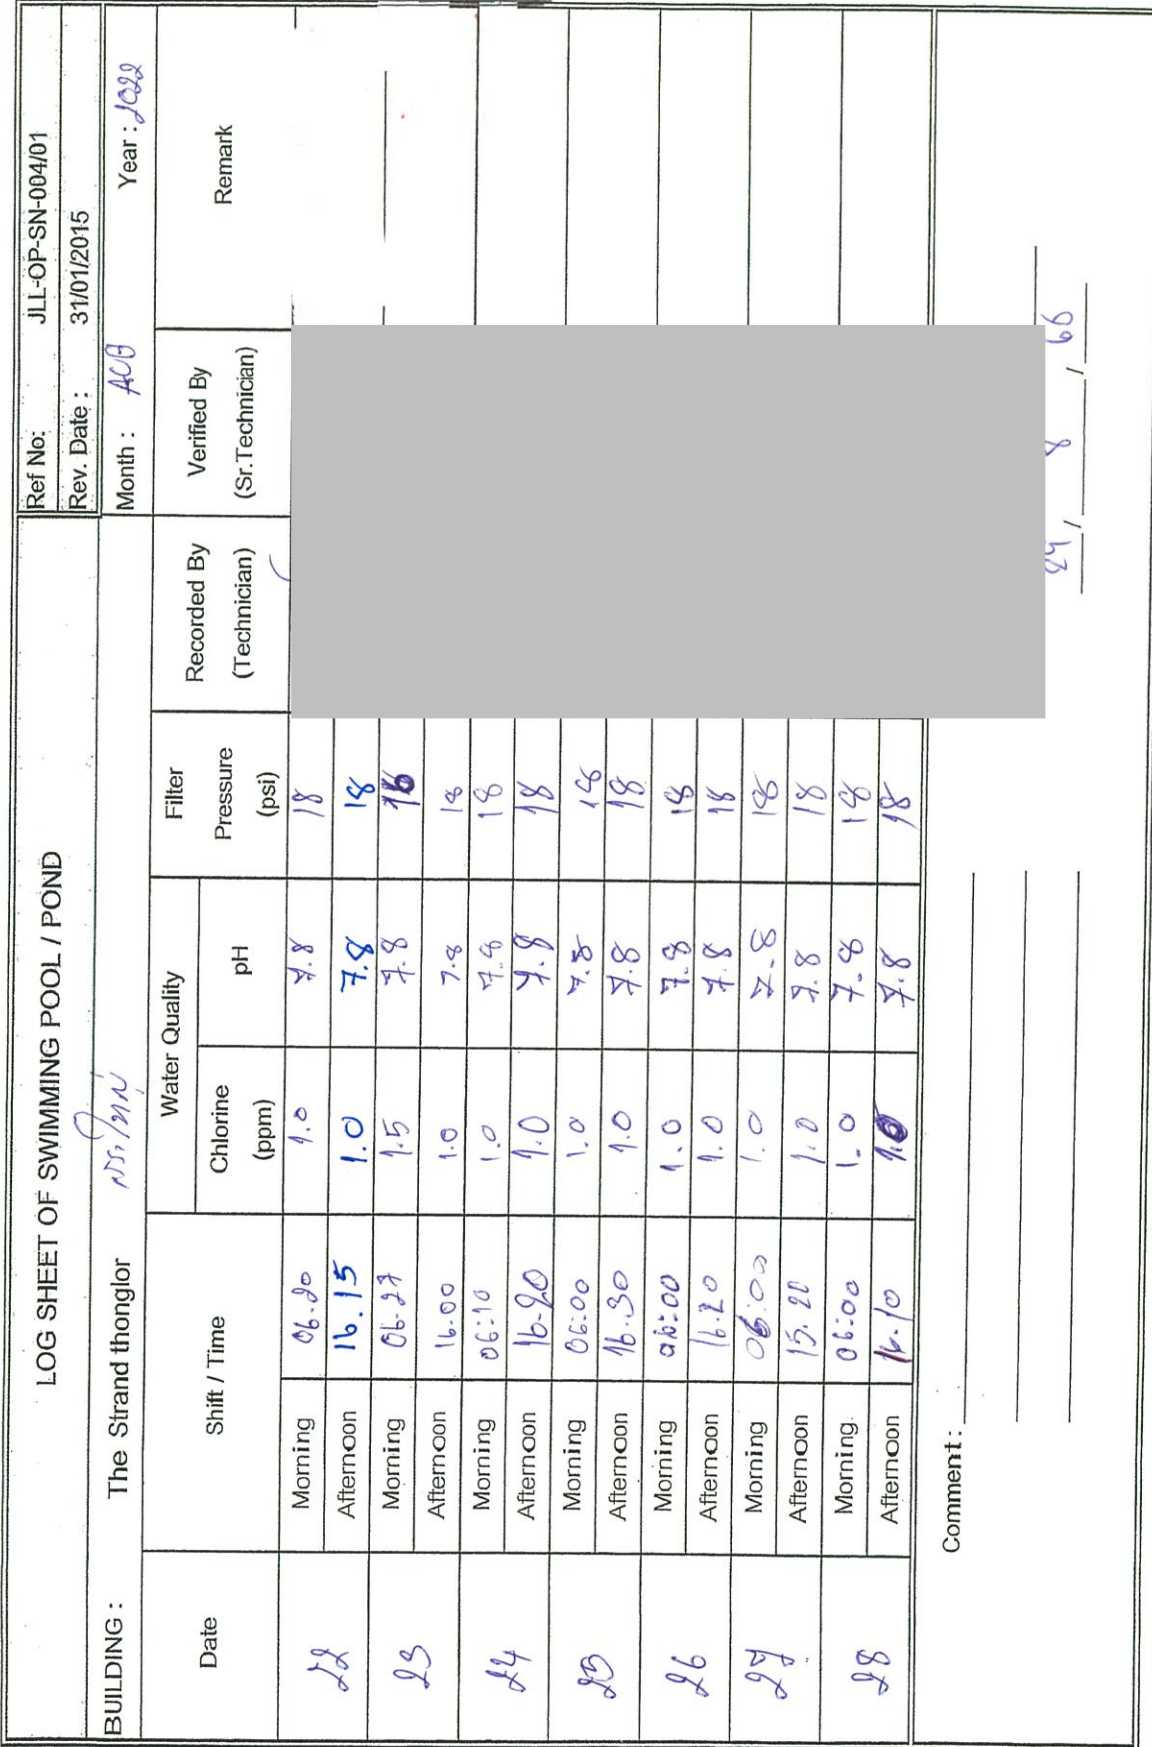 LOG SHEET OF SWIMMING POOL / POND
Ref No: JLL-OP-SN-004/01
Rev. Date : 31/01/2015
BUILDING : The Strand thonglor สระใหญ่
Month : AUG Year : 2022
Date Shift / Time Water Quality Filter Recorded By Verified By Remark
Chlorine pH Pressure (Technician) (Sr.Technician)
(ppm) (psi)
22 Morning 06.20 1.0 7.8 18
Afternoon 16.15 1.0 7.8 18
23 Morning 06.27 1.5 7.8 16
Afternoon 16.00 1.0 7.8 18
24 Morning 06:10 1.0 7.8 18
Afternoon 16.20 1.0 7.8 18
25 Morning 06:00 1.0 7.8 18
Afternoon 16.30 1.0 7.8 18
26 Morning 06:00 1.0 7.8 18
Afternoon 16.20 1.0 7.8 18
27 Morning 06:00 1.0 7.8 18
Afternoon 15.20 1.0 7.8 18
28 Morning 06:00 1.0 7.8 18
Afternoon 16.10 7.8 18
Comment :
/ 8 / 66